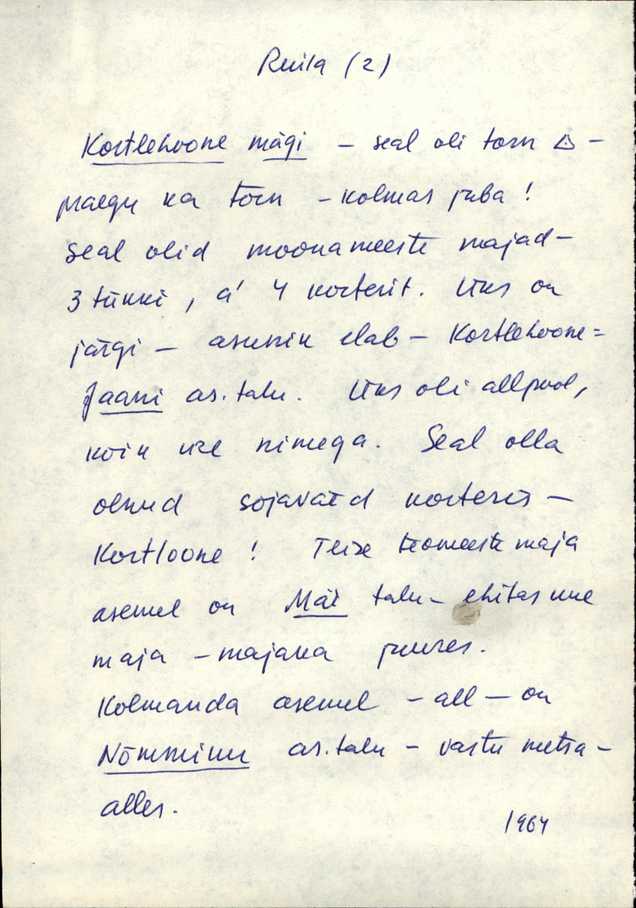 Ruila (2)
Kortlehoone mägi – seal oli torn △ –
praegu ka torn – kolmas juba!
Seal olid moonameeste majad –
3 tükki, á 4 korterit. Üks on
järgi – asunik elab – Kortlehoone=
Jaani as. talu. Üks oli allpool,
kõik üle nimega. Seal olla
olnud sõjaväed korteris –
Kortloone! Teise teomeeste maja
asemel on Mäe talu – ehitas uue
maja – majaka juures.
Kolmanda asemel – all – on
as. talu – vastu metsa –
alles.
1964